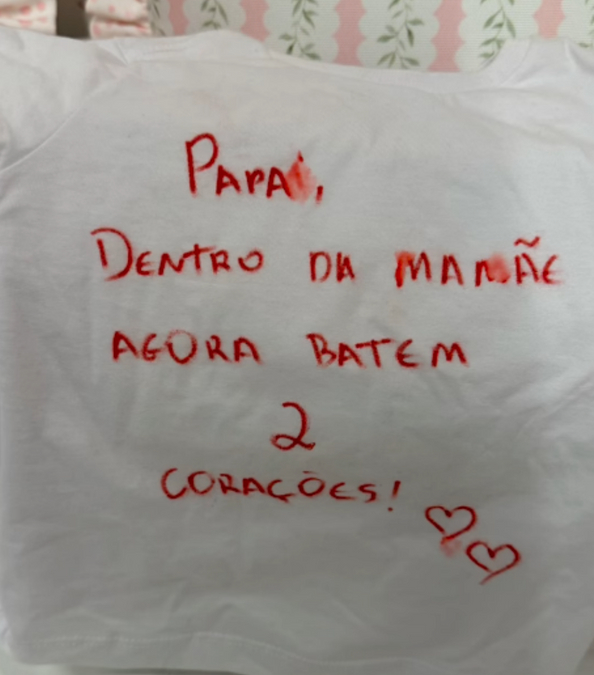 PAPAI,
DENTRO DA MAMÃE
AGORA BATEM
2
CORAÇÕES!